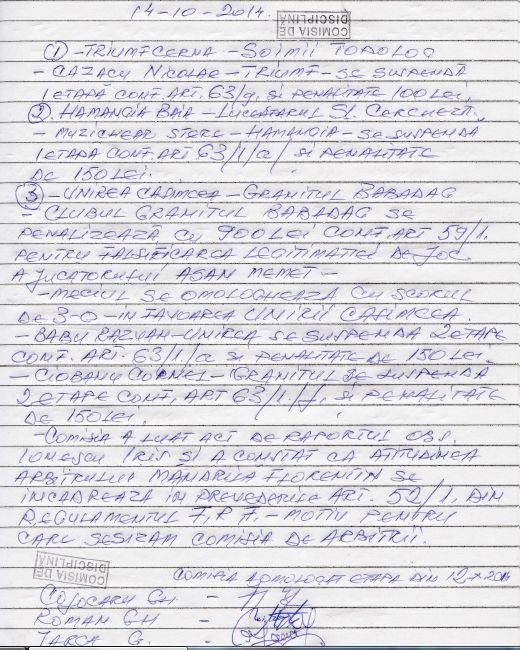 14-10-2014.
COMISIA DE
DISCIPLINĂ
① - TRIUMF CERNA - SOIMII TOPOLOG
- CAZACU NICOLAE - TRIUMF - SE SUSPENDĂ
1 ETAPĂ CONF. ART. 63/g, SI PENALITATE 100 LEI,
②. HAMANGIA BAIA - LUCEAFARUL SL. CERCHEZĂ.
- MUZICHEAR STERE - HAMANGIA - SE SUSPENDA
1 ETAPA CONF. ART 63/1/a/ SI PENALITATE
DE 150 LEI.
③ - UNIREA CASIMCEA - GRANITUL BABADAG
- CLUBUL GRANITUL BABADAG SE
PENALIZEAZĂ CU 900 LEI CONF. ART 59/1.
PENTRU FALSIFICAREA LEGITIMATIEI DE JOC
A JUCATORULUI ASAN MEMET -
- MECIUL SE OMOLOGHEAZĂ CU SCORUL
DE 3-0 - IN FAVOAREA UNIRII CASIMCEA.
- BABU RAZVAN - UNIREA SE SUSPENDA 2 ETAPE
CONF. ART. 63/1/a SI PENALITATE DE 150 LEI.
- CIOBANU CORNEL - GRANITUL SE SUSPENDĂ
2 ETAPE CONF. ART 63/1/f, SI PENALITATE
DE 150 LEI.
- COMISIA A LUAT ACT DE RAPORTUL OBS.
IONESCU IRIS SI A CONSTAT CA ATITUDINEA
ARBITRULUI MANDRILA FLORENTIN SE
INCADREAZĂ IN PREVEDERILE ART. 52/1. DIN
REGULAMENTUL F.R.F. - MOTIV PENTRU
CARE SESIZAM COMISIA DE ARBITRII.
COMISIA DE
DISCIPLINĂ
COMISIA A OMOLOGAT ETAPA DIN 12.X.2014
COJOCARU GH. -
ROMAN GH -
IARCA G. -